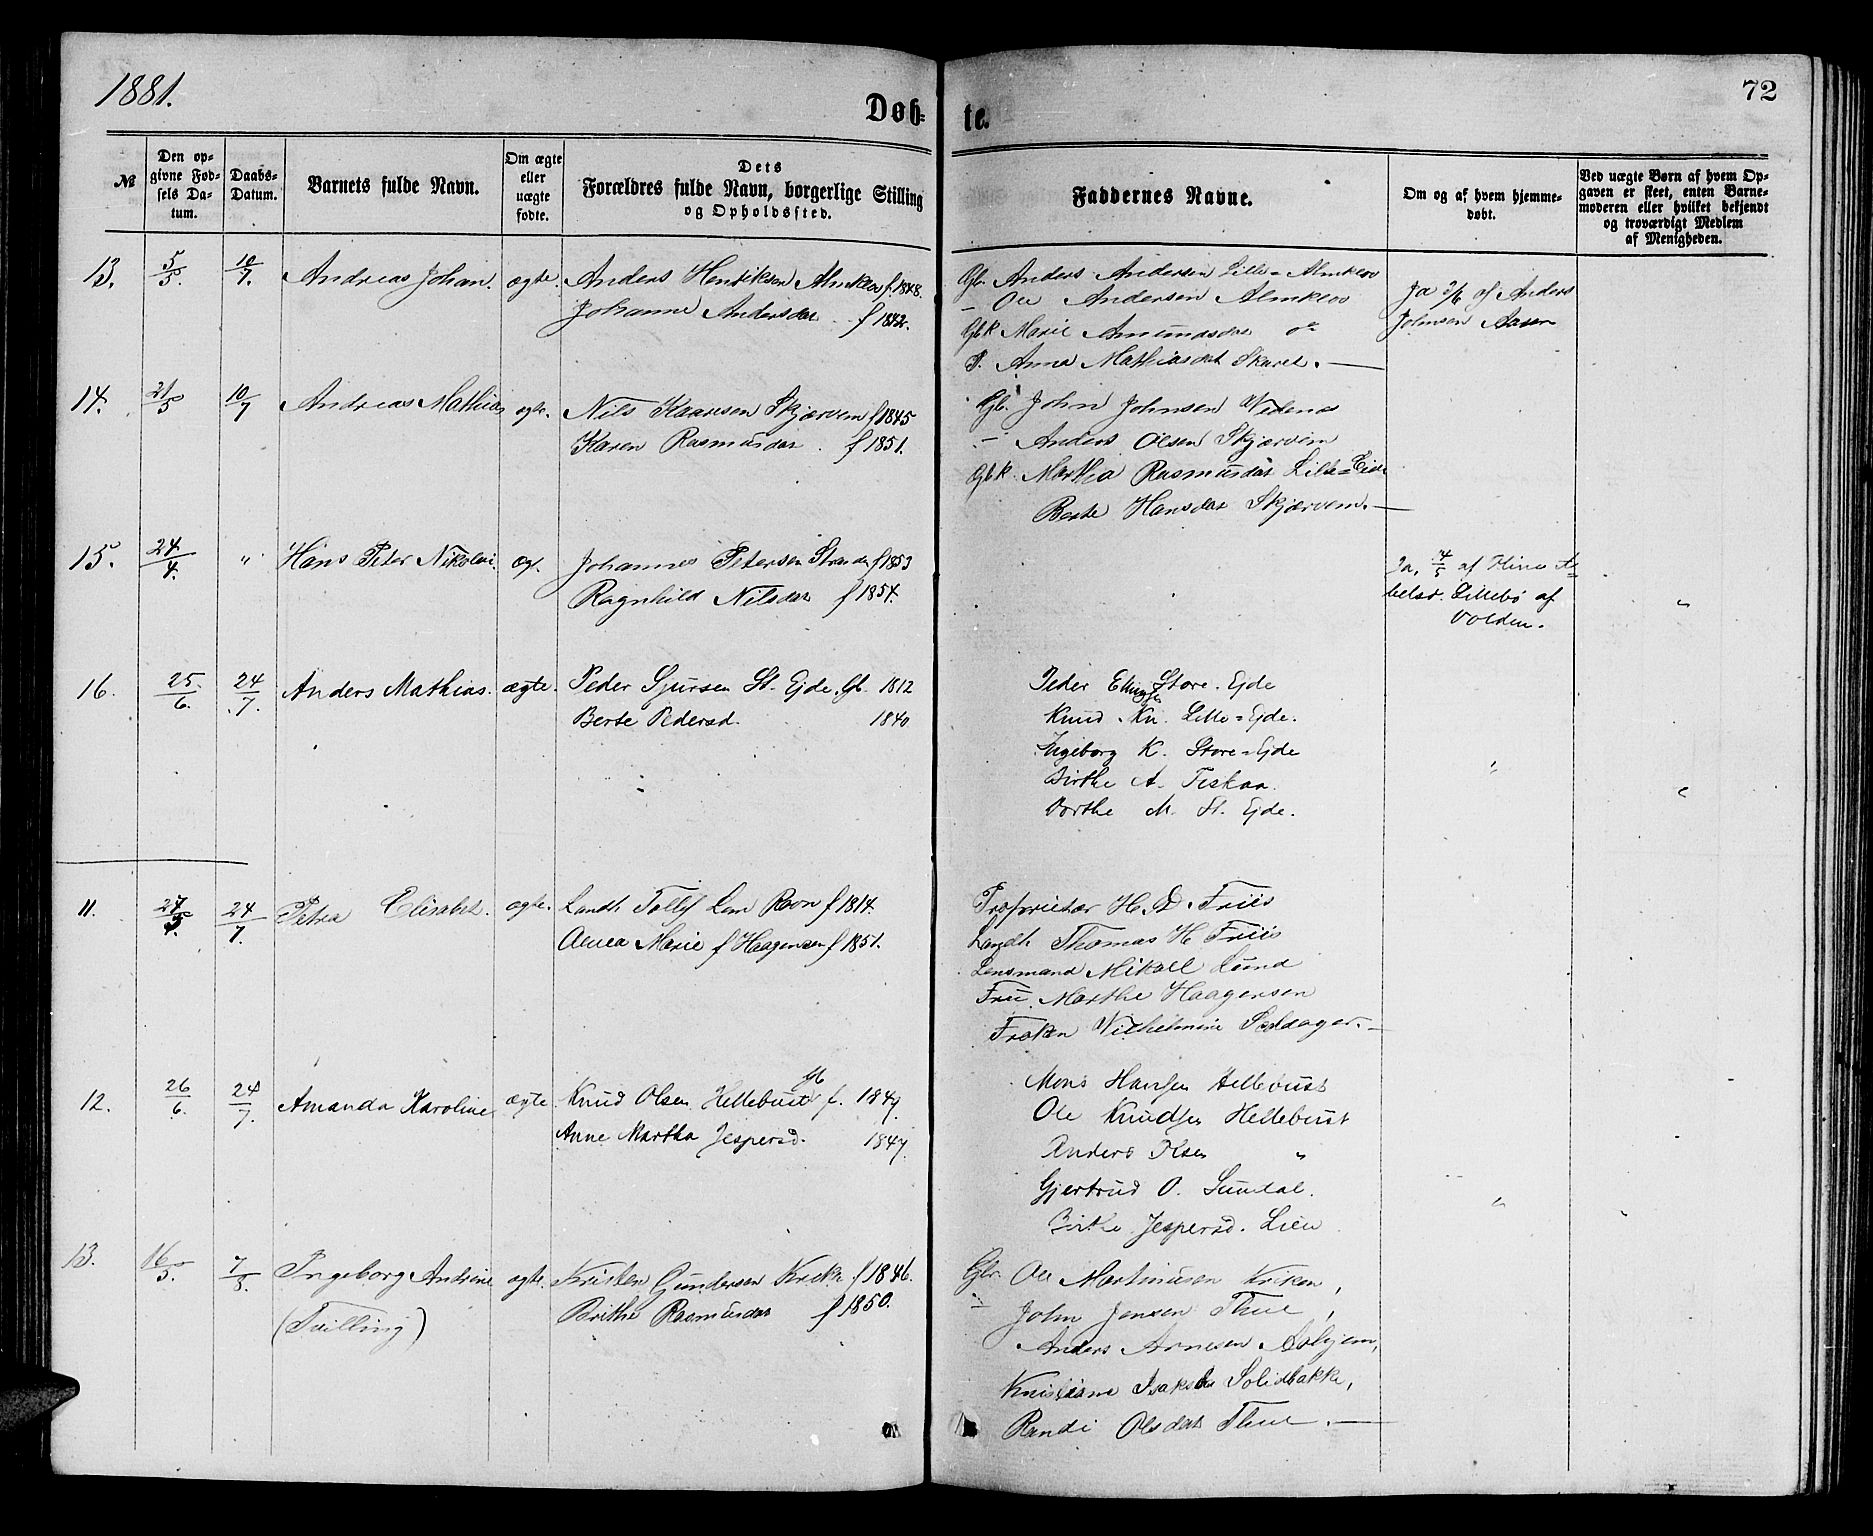 1881.
Døb=
te.
72
№
Den op=
givne Fød=
sels Da=
tum.
Daabs=
Datum.
Barnets fulde Navn.
Om ægte
eller
uægte
fødte.
Dets
Forældres fulde Navn, borgerlige Stilling
og Opholdssted.
Faddernes Navne.
Om og af hvem hjemme=
døbt.
Ved uægte Børn af hvem Op=
gaven er skeet, enten Barne=
moderen eller hvilket bekjendt
og troværdigt Medlem
af Menigheden.
13. 5/5. 10/7. Andreas Johan. ægte. Anders Henriksen Almklov f. 1848.
Johanne Andersdat f 1842.
Gbr. Anders Andersen Lille=Almklov
— Ole Andersen Almklov
Gbk Marie Amundsdat
P. Anna Mathiasdat Skaret. —
Ja 3/6 af Anders
Johnsen Aasen
14. 21/5 10/7 Andreas Mathias ægte. Nils Knudsen Skjærvem f 1845
Karen Rasmusdat. f 1851.
Gbr. John Johnsen Vedenes
— Anders Olsen Skjærvem
Gbk. Martha Rasmusdat Lille=Eide
Berte Hansdat Skjærvem. —
15. 24/4. " Hans Peter Nikolai. ægt. Johannes Petersen Stranden f 1853
Ragnhild Nilsdat f 1854.
Ja, 4/5 af Stine A=
belsd. Lillebö af
Volden.
"
16. 25/6. 24/7. Anders Mathias. ægte. Peder Sjursen St. Ejde. Gb. 1812
Berte Pedersd. 1840
Peder Ellingsen Store-Ejde
Knud Kn. Lille=Ejde.
Ingeborg K. Store=Ejde
Birthe A. Fiskaa.
Dorthe M. St. Ejde.
"
11. 27/3. 24/7. Petra Elisabet. ægte. Landh. Tollef Lem Ravn f 1814.
Anna Marie f Haagensen f 1851.
Proprietær H. D. Friis
Landh Thomas H Friis
Lensmand Mikael Lund
Fru Marthe Haagensen
Frøken Vilhelmine Saldager. —
12. 26/6. 24/7. Amanda Karoline ægte. Knud Olsen Hellebust Gb f. 1847.
Anne Martha Jespersd. 1847.
Mons Hansen Hellebust
Ole Knudsen Hellebust
Anders Olsen "
Gjertrud O. Sundal.
Birthe Jespersd. Lien
"
13. 16/3. 7/8. Ingeborg Andrine ægte. Kristen Gundersen Kriken f 1846.
(Tvilling) Brithe Rasmusdat f 1850.
Gbr. Ole Martinusen Kriken,
— John Jensen Thue,
Anders Arnesen Aabjem,
Kristiane Isaksdat Solidbakke,
Randi Olsdat Thue. —